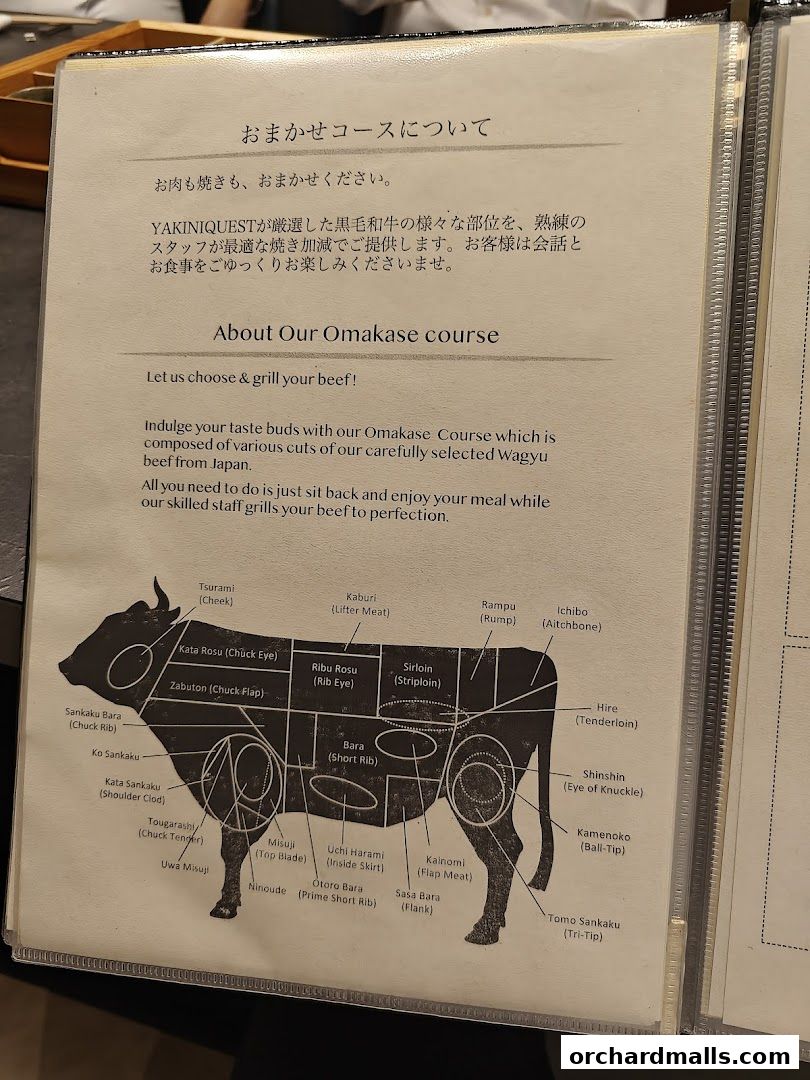 おまかせコースについて
お肉も焼きも、おまかせください。
YAKINIQUESTが厳選した黒毛和牛の様々な部位を、熟練の
スタッフが最適な焼き加減でご提供します。お客様は会話と
お食事をごゆっくりお楽しみくださいませ。
About Our Omakase course
Let us choose & grill your beef!
Indulge your taste buds with our Omakase Course which is
composed of various cuts of our carefully selected Wagyu
beef from Japan.
All you need to do is just sit back and enjoy your meal while
our skilled staff grills your beef to perfection.
Tsurami
(Cheek)
Kaburi
(Lifter Meat)
Rampu
(Rump)
Ichibo
(Aitchbone)
Kata Rosu (Chuck Eye)
Zabuton (Chuck Flap)
Ribu Rosu
(Rib Eye)
Sirloin
(Striploin)
Hire
(Tenderloin)
Sankaku Bara
(Chuck Rib)
Bara
(Short Rib)
Ko Sankaku
Kata Sankaku
(Shoulder Clod)
Shinshin
(Eye of Knuckle)
Tougarashi
(Chuck Tender)
Kamenoko
(Ball-Tip)
Uwa Misuji
Misuji
(Top Blade)
Uchi Harami
(Inside Skirt)
Kainomi
(Flap Meat)
Ninoude
Otoro Bara
(Prime Short Rib)
Sasa Bara
(Flank)
Tomo Sankaku
(Tri-Tip)
orchardmalls.com